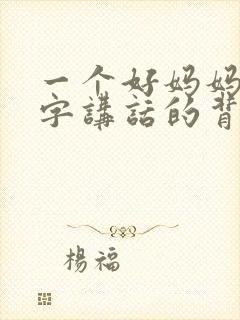 一个好妈妈
字講話的背
楊福